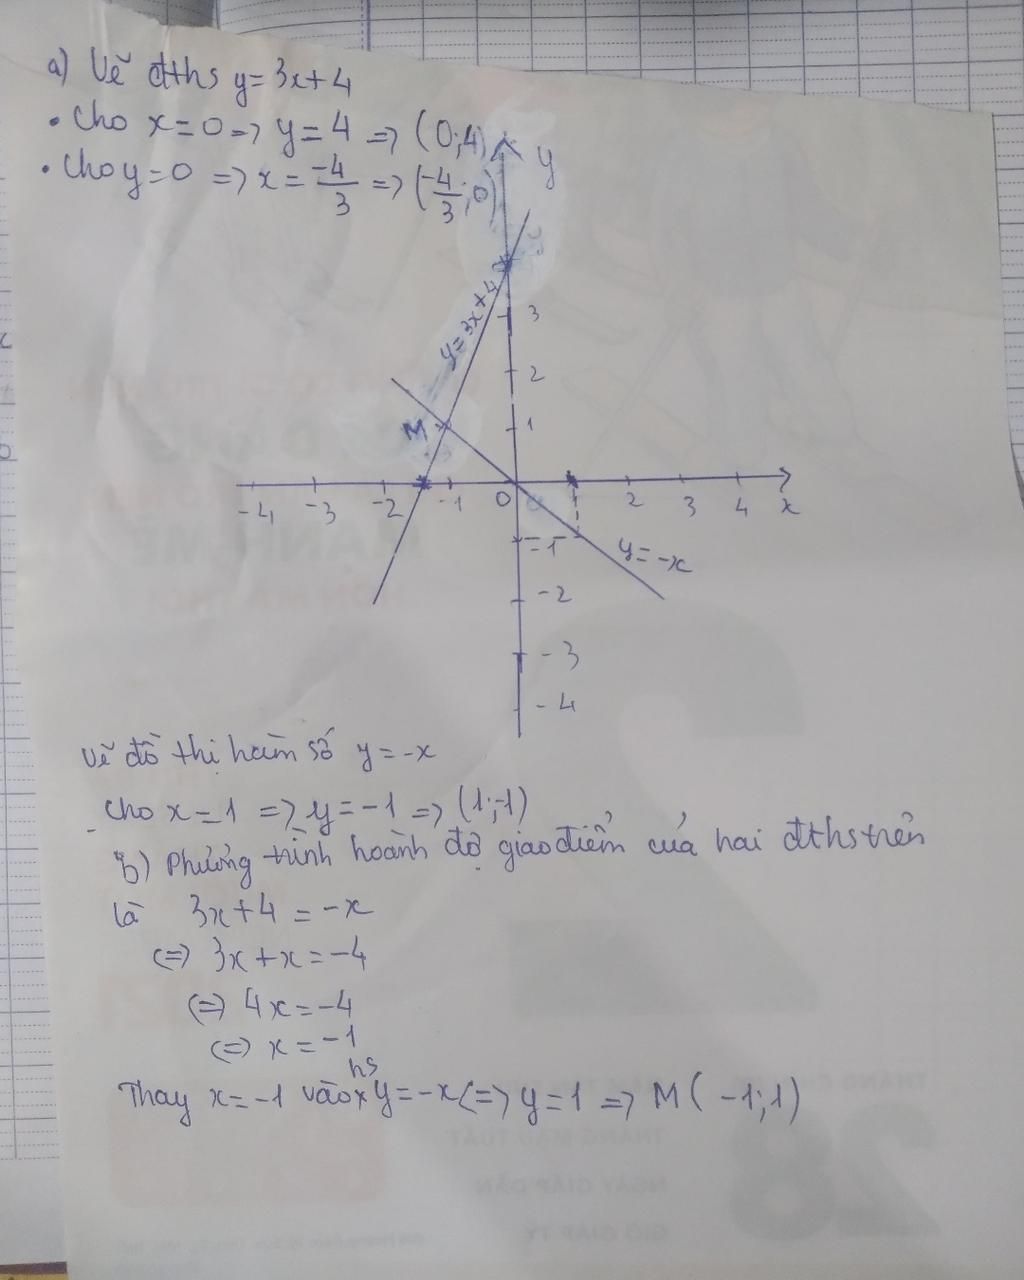 a) Vẽ đths y=3x+4
• Cho x=0 => y=4 => (0;4)
• Cho y=0 => x=-4/3 => (-4/3;0)
y
3
y=3x+4
2
M
1
-4 -3 -2 -1 0 2 3 4 x
-1
y=-x
-2
-3
-4
Vẽ đồ thị hàm số y=-x
Cho x=1 => y=-1 => (1;-1)
b) Phương trình hoành độ giao điểm của hai đths trên
là 3x+4=-x
<=> 3x+x=-4
<=> 4x=-4
<=> x=-1
Thay x=-1 vào hs y=-x <=> y=1 => M(-1;1)